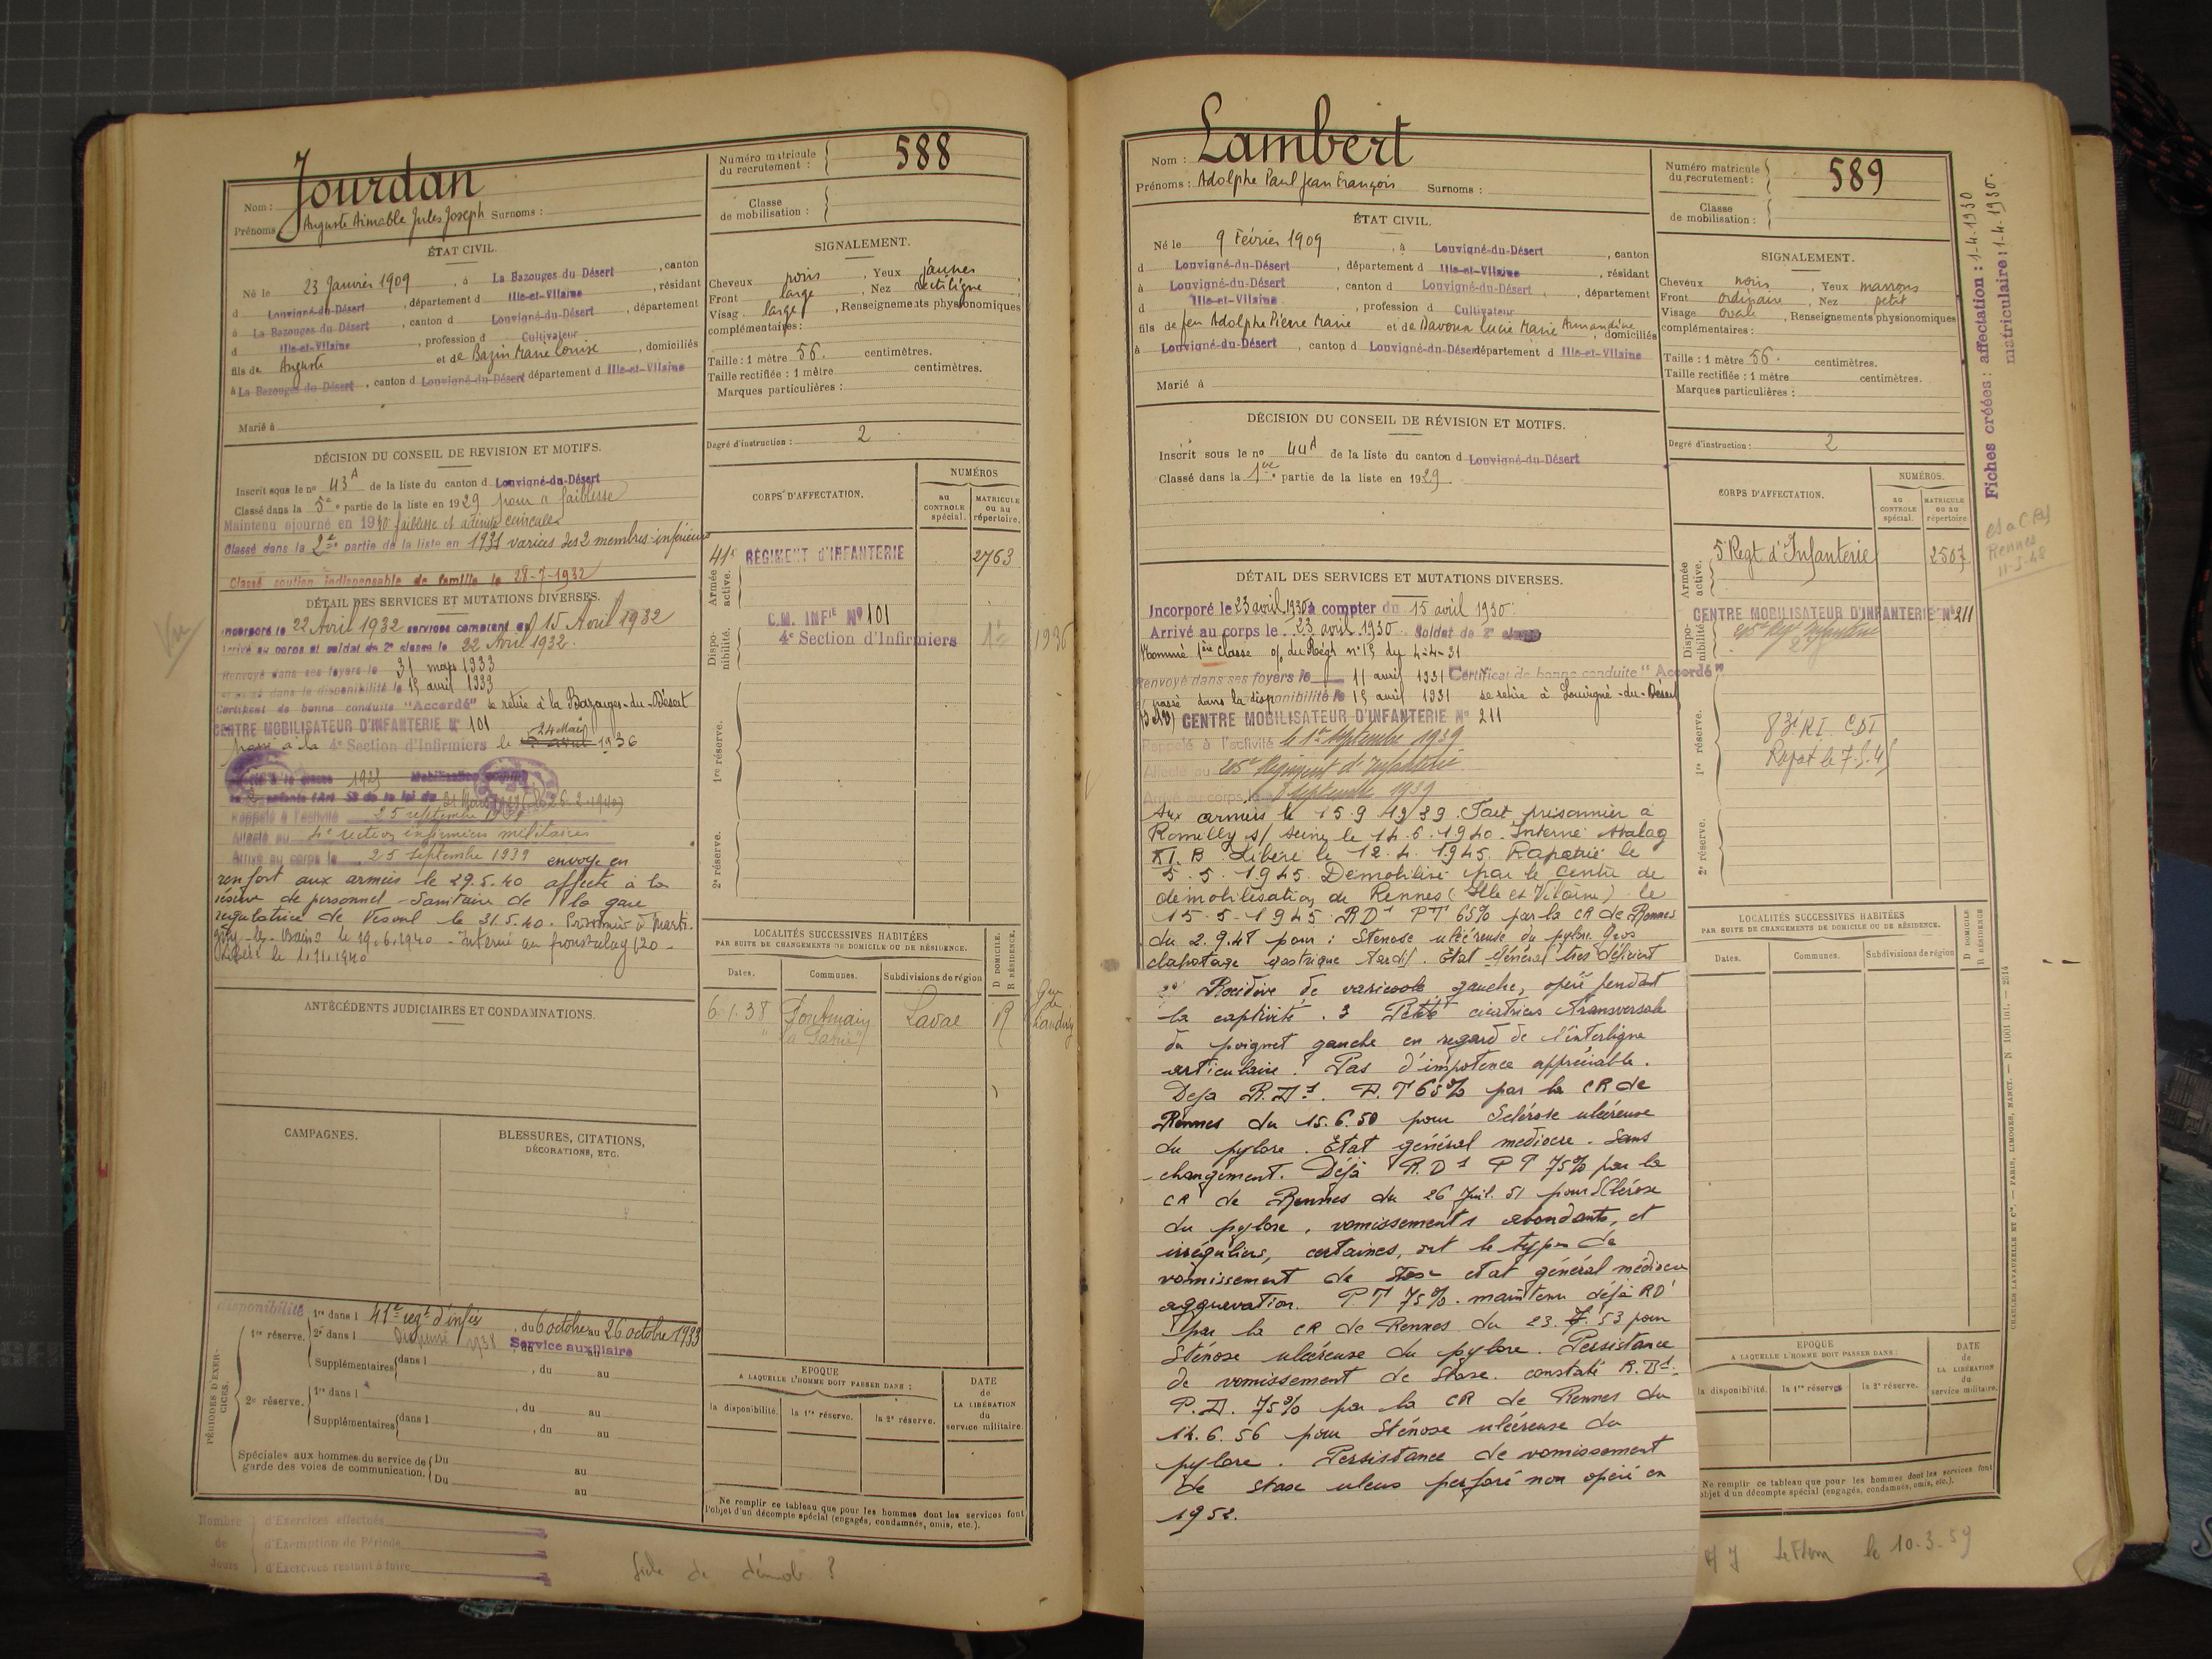 Jourdan
Nom :
Prénoms : Auguste Aimable Jules Joseph Surnoms :
ÉTAT CIVIL.
Né le 23 Janvier 1909, à La Bazouges du Désert, canton
d Louvigné-du-Désert, département d Ille-et-Vilaine, résidant
à La Bazouges du Désert, canton d Louvigné-du-Désert, département
d Ille-et-Vilaine, profession d Cultivateur
fils de Auguste et de Bazin Marie Louise, domiciliés
à La Bazouges du Désert, canton d Louvigné-du-Désert département d Ille-et-Vilaine
Marié à
DÉCISION DU CONSEIL DE REVISION ET MOTIFS.
Inscrit sous le no 43A de la liste du canton d Louvigné-du-Désert
Classé dans la 5e partie de la liste en 1929 pour faiblesse
Maintenu ajourné en 1930 faiblesse et adénite cervicale
Classé dans la 2e partie de la liste en 1931 varices des 2 membres inférieurs
Classé soutien indispensable de famille le 28-7-1932
DÉTAIL DES SERVICES ET MUTATIONS DIVERSES.
Incorporé le 22 Avril 1932 services comptant du 15 Avril 1932
Arrivé au corps et soldat de 2e classe le 22 Avril 1932.
Renvoyé dans ses foyers le 31 mars 1933
passé dans la disponibilité le 15 avril 1933
Certificat de bonne conduite "Accordé" se retire à la Bazouges-du-Désert
CENTRE MOBILISATEUR D'INFANTERIE No 101
passé à la 4e Section d'Infirmiers le 5 avril 24 Mai 1936
Rappelé à l'activité 25 septembre 1939
Affecté au 4e section infirmiers militaires
Arrivé au corps le 25 Septembre 1939 envoyé en
renfort aux armées le 29.5.40 affecté à la
réserve de personnel Sanitaire de la gare
régulatrice de Vesoul le 31.5.40. Prisonnier à Marti-
gny-les-Bains le 19.6.1940 - Interné au frontstalag 120 -
Libéré le 1.11.1940
ANTÉCÉDENTS JUDICIAIRES ET CONDAMNATIONS.
CAMPAGNES.
BLESSURES, CITATIONS,
DÉCORATIONS, ETC.
PÉRIODES D'EXERCICES.
disponibilité
1re réserve. 1re dans l 41e régt d'infie, du 6 octobre au 26 octobre 1933
2e dans l Dispensé 1938, du au Service auxiliaire
Supplémentaires dans l, du au
2e réserve. 1re dans l, du au
Supplémentaires dans l, du au
Spéciales aux hommes du service de
garde des voies de communication.
Du au
Du au
Nombre de Jours
d'Exercices effectués
d'Exemption de Période
d'Exercices restant à faire
Numéro matricule
du recrutement : 588
Classe
de mobilisation :
SIGNALEMENT.
Cheveux noirs, Yeux jaunes
Front large, Nez rectiligne
Visage large, Renseignements physionomiques
complémentaires :
Taille : 1 mètre 56. centimètres.
Taille rectifiée : 1 mètre centimètres.
Marques particulières :
Degré d'instruction : 2
CORPS D'AFFECTATION.
NUMÉROS
au CONTROLE spécial.
MATRICULE ou au répertoire.
Armée active.
41e RÉGIMENT D'INFANTERIE 2763
Disponibilité.
C.M. INFIE No 101
4e Section d'Infirmiers
1936
1re réserve.
2e réserve.
LOCALITÉS SUCCESSIVES HABITÉES
PAR SUITE DE CHANGEMENTS DE DOMICILE OU DE RÉSIDENCE.
Dates. Communes. Subdivisions de région D DOMICILE R RÉSIDENCE.
6.1.38 Pontmain Laval R
EPOQUE
A LAQUELLE L'HOMME DOIT PASSER DANS :
la disponibilité. la 1re réserve. la 2e réserve.
DATE
de
LA LIBÉRATION
du
service militaire.
Ne remplir ce tableau que pour les hommes dont les services font
l'objet d'un décompte spécial (engagés, condamnés, omis, etc.).
fiche de démob ?
Vu
Lambert
Nom :
Prénoms : Adolphe Paul Jean François Surnoms :
ÉTAT CIVIL.
Né le 9 Février 1909, à Louvigné-du-Désert, canton
d Louvigné-du-Désert, département d Ille-et-Vilaine, résidant
à Louvigné-du-Désert, canton d Louvigné-du-Désert, département
d Ille-et-Vilaine, profession d Cultivateur
fils de feu Adolphe Pierre Marie et de Davoux Lucie Marie Amandine, domiciliés
à Louvigné-du-Désert, canton d Louvigné-du-Désert département d Ille-et-Vilaine
Marié à
DÉCISION DU CONSEIL DE RÉVISION ET MOTIFS.
Inscrit sous le no 44A de la liste du canton d Louvigné-du-Désert
Classé dans la 1re partie de la liste en 1929
DÉTAIL DES SERVICES ET MUTATIONS DIVERSES.
Incorporé le 23 avril 1930 à compter du 15 avril 1930.
Arrivé au corps le 23 avril 1930. Soldat de 2e classe
Nommé 1ère classe o/ du Régt no 15 du 4-4-31
Renvoyé dans ses foyers le 11 avril 1931 Certificat de bonne conduite "Accordé"
passé dans la disponibilité le 15 avril 1931 se retire à Louvigné-du-Désert
CENTRE MOBILISATEUR D'INFANTERIE No 211
Rappelé à l'activité le 1er Septembre 1939
Affecté au Régiment d'Infanterie
Arrivé au corps le 2 Septembre 1939
Aux armées le 15.9.1939. Fait prisonnier à
Romilly s/ Seine le 14.6.1940. Interné Stalag
XI.B Libéré le 12.4.1945. Rapatrié le
5.5.1945. Démobilisé par le Centre de
démobilisation de Rennes (Ille et Vilaine) le
15-5-1945. RD1 PT 65% par la CR de Rennes
du 2.9.48 pour : Sténose ulcéreuse du pylore. Gros
clapotage gastrique tardif. Etat Général très déficient
2° Récidive de varicocèle gauche, opéré pendant
la captivité. 3 Petite cicatrice transversale
du poignet gauche en regard de l'interligne
articulaire. Pas d'impotence appréciable.
Deja R.D1. P.T 65% par la CR de
Rennes du 15.6.50 pour Sclérose ulcéreuse
du pylore. Etat général médiocre. Sans
changement. Déjà R.D1 PT 75% par la
CR de Rennes du 26 Juil. 51 pour Sclérose
du pylore, vomissements abondants, et
irréguliers, certaines, ont le type de
vomissement de stase etat général médiocre
aggravation. P.T 75%. maintenu déjà RD1
par la CR de Rennes du 23.7.53 pour
Sténose ulcéreuse du pylore. Persistance
de vomissement de Stase. constaté R.D1.
P.D. 75% par la CR de Rennes du
14.6.56 pour Sténose ulcéreuse du
pylore. Persistance de vomissement
de stase ulcus perforé non opéré en
1952.
Numéro matricule
du recrutement : 589
Classe
de mobilisation :
SIGNALEMENT.
Cheveux noirs, Yeux marrons
Front ordinaire, Nez petit
Visage ovale, Renseignements physionomiques
complémentaires :
Taille : 1 mètre 56. centimètres.
Taille rectifiée : 1 mètre centimètres.
Marques particulières :
Degré d'instruction : 2
CORPS D'AFFECTATION.
NUMÉROS.
au CONTROLE spécial.
MATRICULE ou au répertoire
Armée active.
5e Regt d'Infanterie 2507
Disponibilité.
CENTRE MOBILISATEUR D'INFANTERIE No 211
1re réserve.
83e RI. CDI
Rapat le 7.5.45
2e réserve.
LOCALITÉS SUCCESSIVES HABITÉES
PAR SUITE DE CHANGEMENTS DE DOMICILE OU DE RÉSIDENCE.
Dates. Communes. Subdivisions de région D DOMICILE R RÉSIDENCE
EPOQUE
A LAQUELLE L'HOMME DOIT PASSER DANS :
la disponibilité. la 1re réserve la 2e réserve.
DATE
de
LA LIBÉRATION
du
service militaire.
Ne remplir ce tableau que pour les hommes dont les services font
l'objet d'un décompte spécial (engagés, condamnés, omis, etc.).
le 10.3.59
Fiches créées : affectation : 1-4-1930
matriculaire : 1-4-1930.
Rennes
11-5-48
CHARLES-LAVAUZELLE ET Cie. — PARIS, LIMOGES, NANCY. — N 1001 1611. — 2514